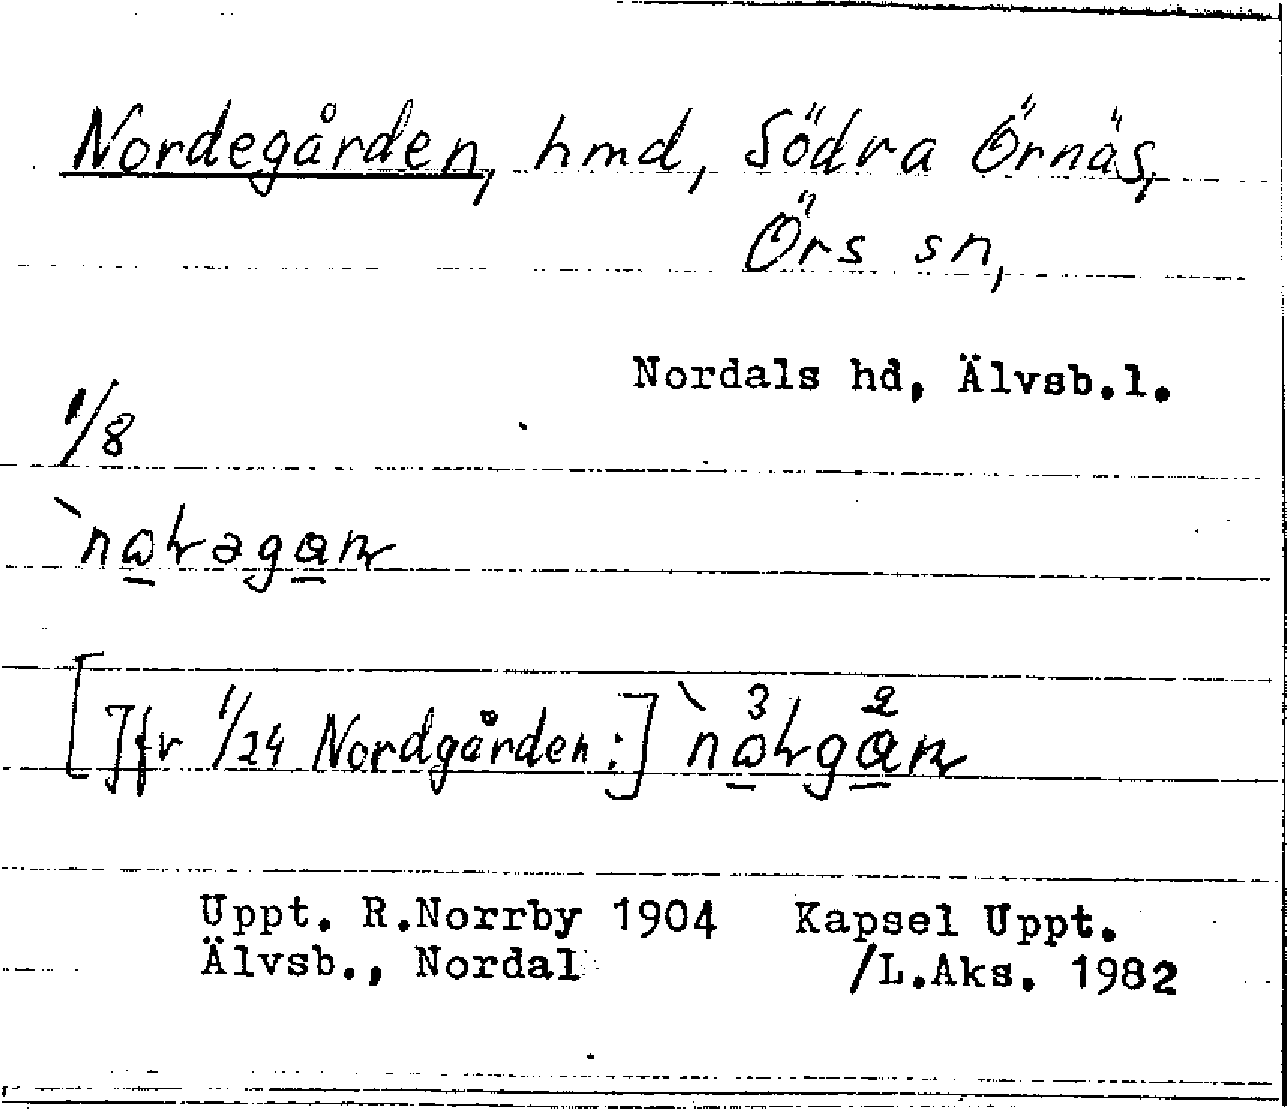 Nordegården, hmd, Södra Örnäs,
Örs sn,
Nordals hd, Älvsb.l.
1/8
[Jfr 1/24 Nordgården:]
Uppt. R.Norrby 1904 Kapsel Uppt.
Älvsb., Nordal /L.Aks. 1982